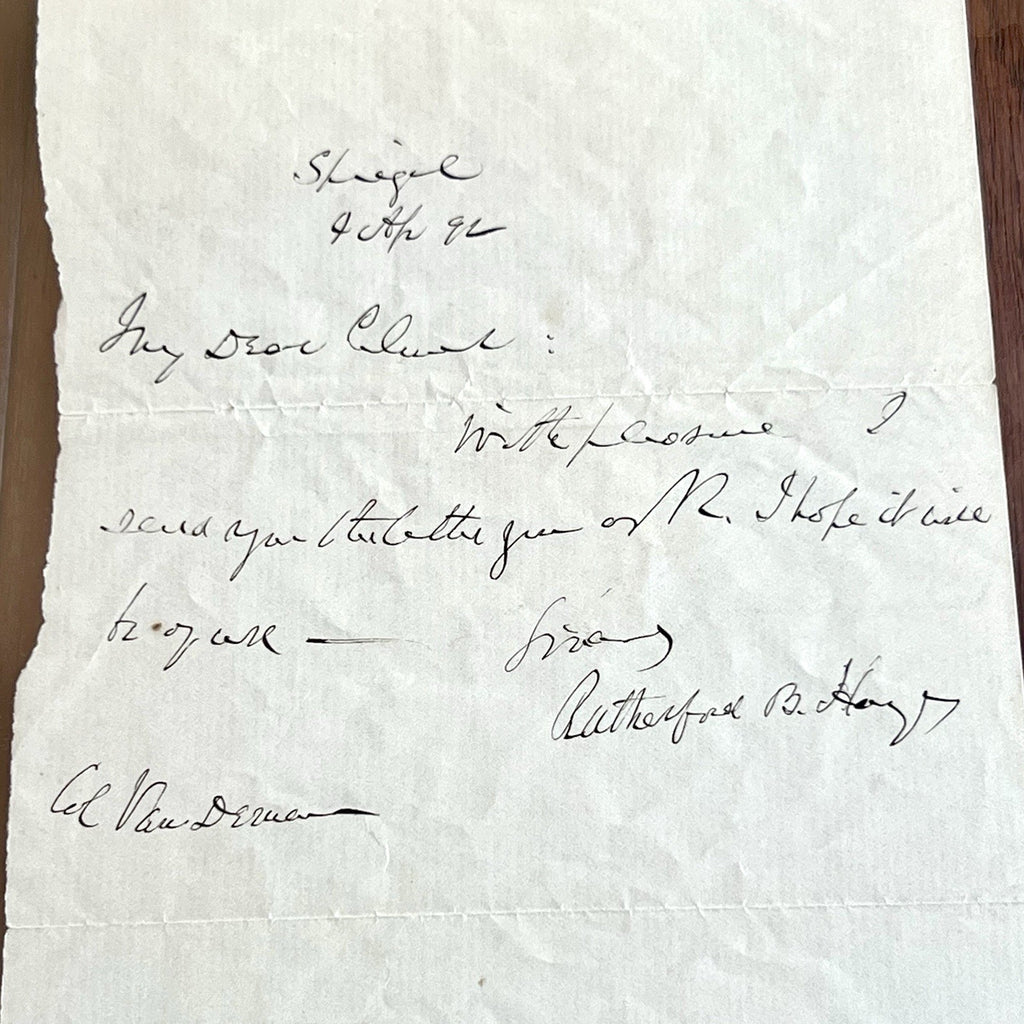 Spiegel
9 Ap 92
My Dear Colonel:
With pleasure I
send you the letter you ask. I hope it will
be of use —
Sincerely
Rutherford B. Hayes
Col Van Deman